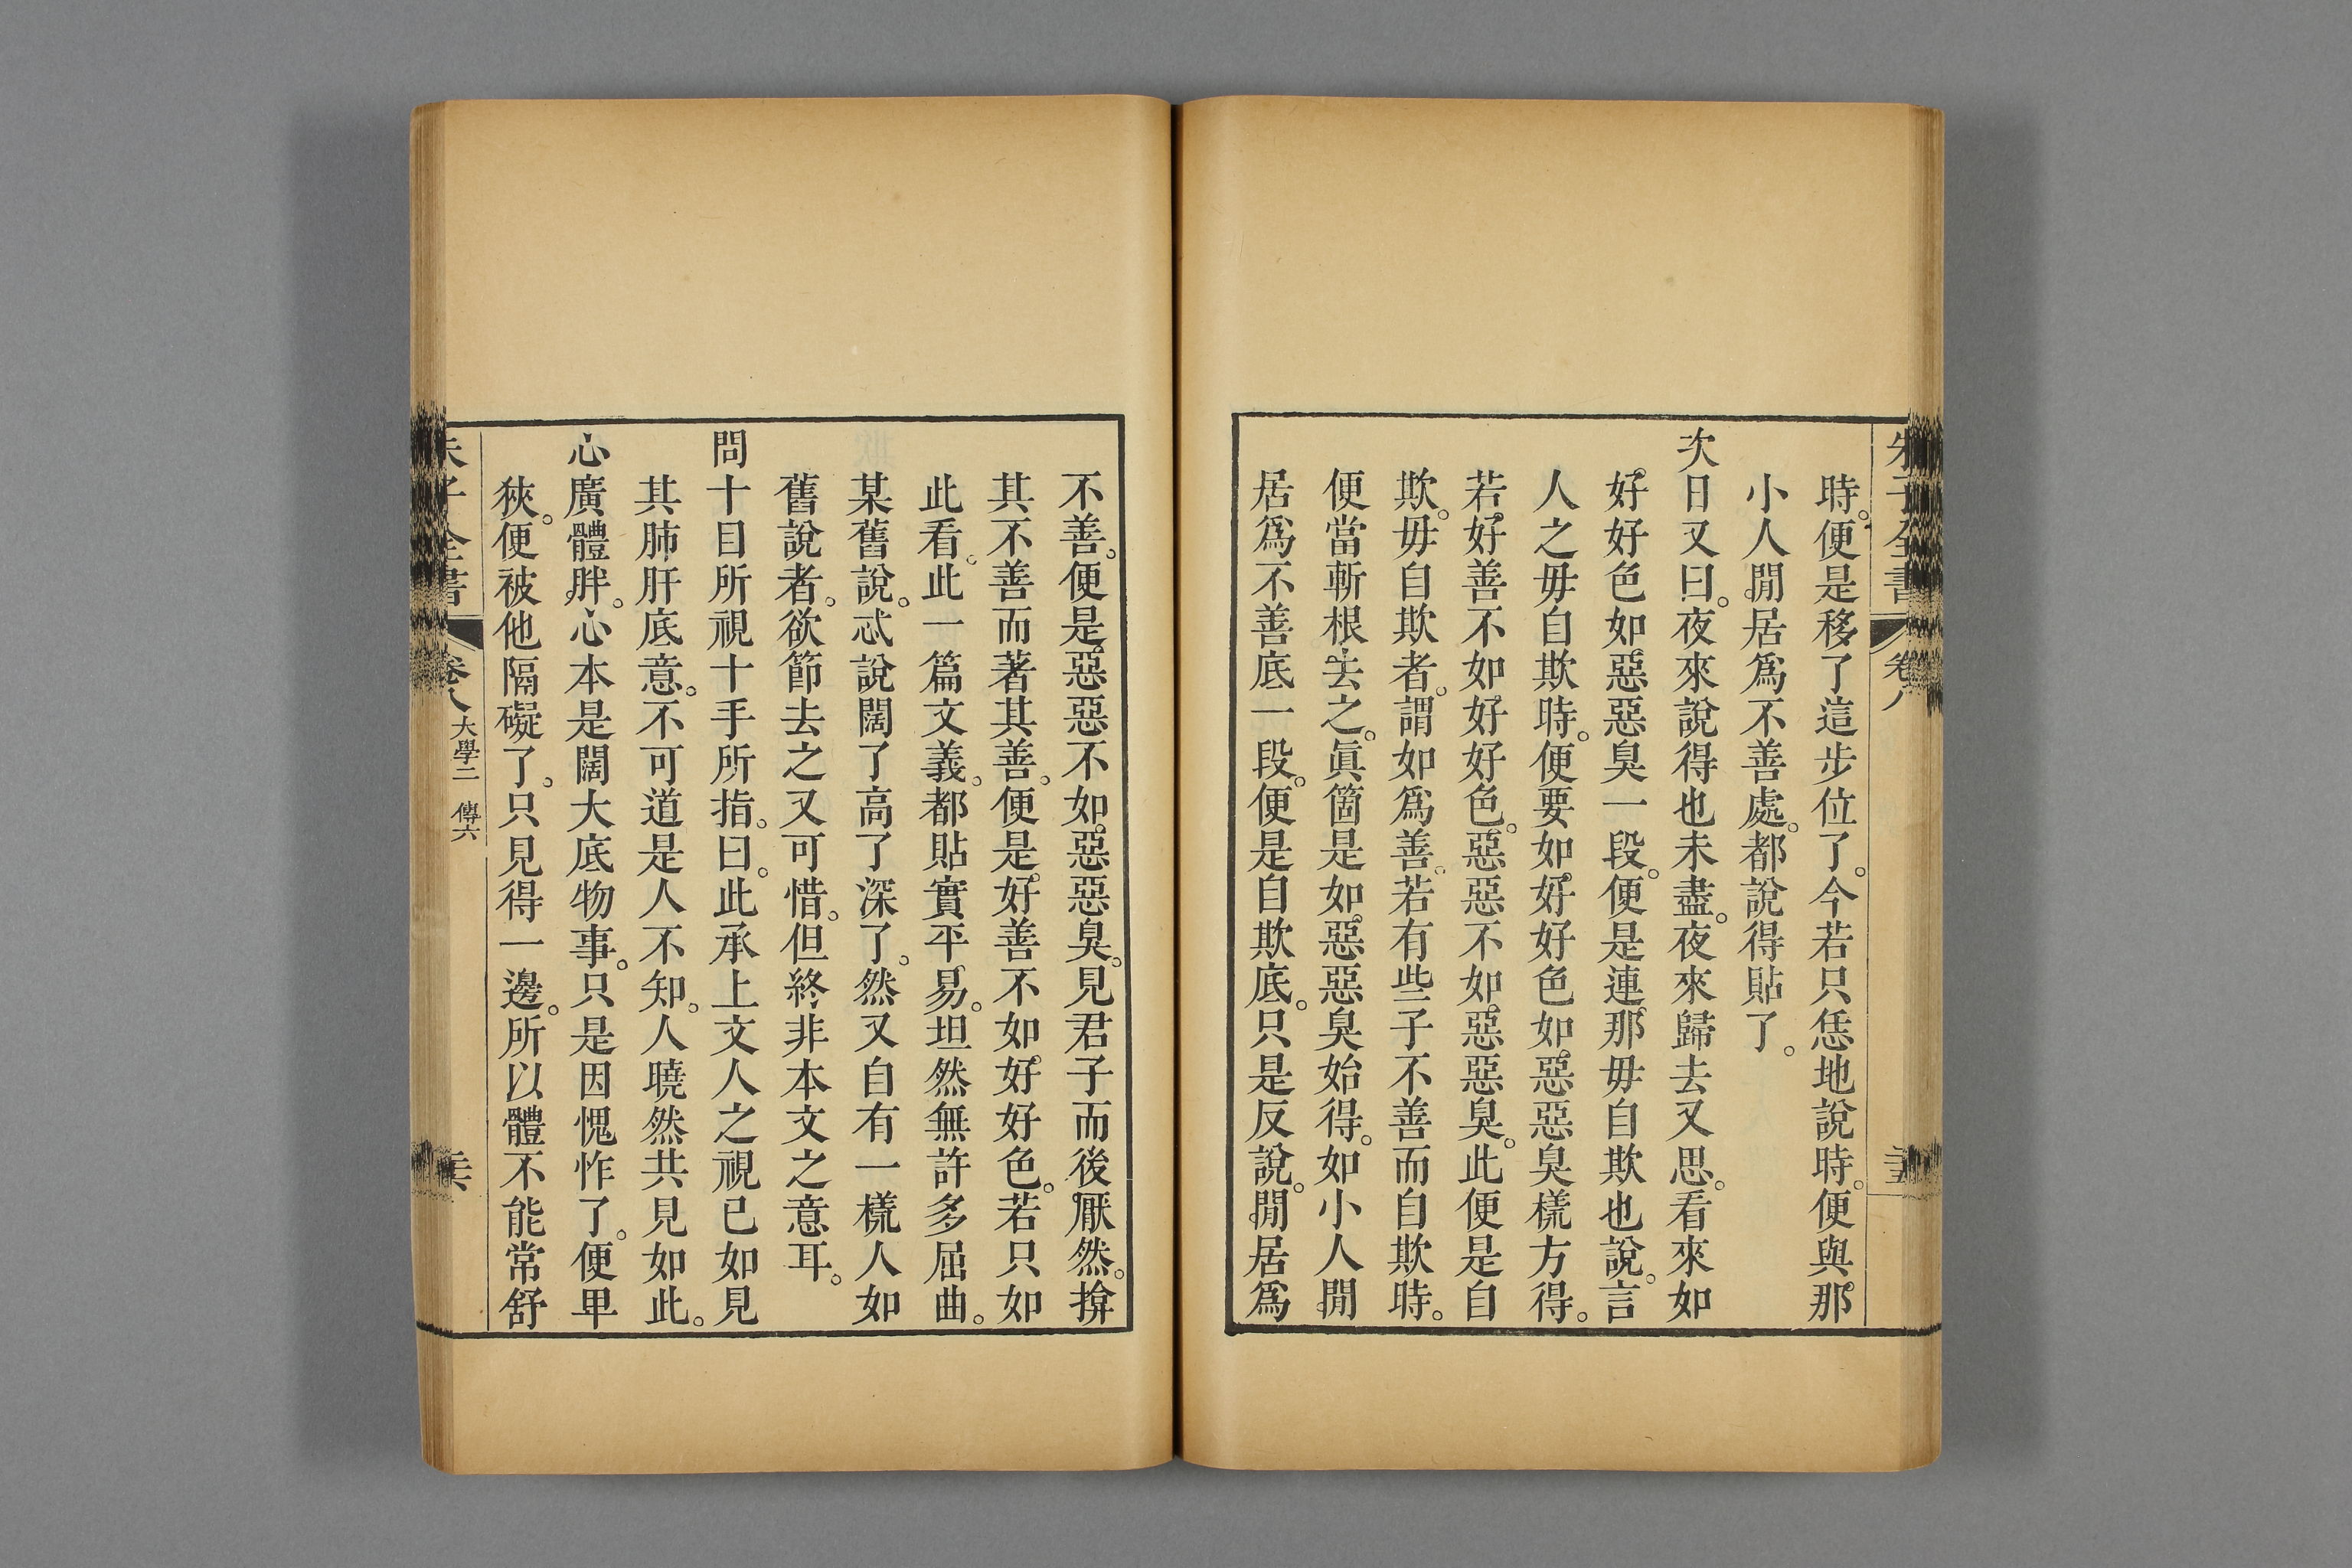 朱子全書 卷八
時。便是移了這步位了。今若只恁地說時。便與那
小人閒居爲不善處。都說得貼了。
次日又曰。夜來說得也未盡。夜來歸去又思。看來如
好好色如惡惡臭一段。便是連那毋自欺也說。言
人之毋自欺時。便要如好好色如惡惡臭㨾方得。
若好善不如好好色。惡惡不如惡惡臭。此便是自
欺。毋自欺者。謂如爲善。若有些子不善而自欺時。
便當斬根去之。眞箇是如惡惡臭始得。如小人閒
居爲不善底一段。便是自欺底。只是反說。閒居爲
不善。便是惡惡不如惡惡臭。見君子而後厭然。揜
其不善而著其善。便是好善不如好好色。若只如
此看。此一篇文義。都貼實平易。坦然無許多屈曲。
某舊說。忒說闊了高了深了。然又自有一㨾人如
舊說者。欲節去之又可惜。但終非本文之意耳。
問十目所視十手所指。曰。此承上文人之視已如見
其肺肝底意。不可道是人不知。人曉然共見如此。
心廣體胖。心本是闊大底物事。只是因愧怍了。便卑
狹。便被他隔礙了。只見得一邊。所以體不能常舒
朱子全書 卷八 大學二 傳六